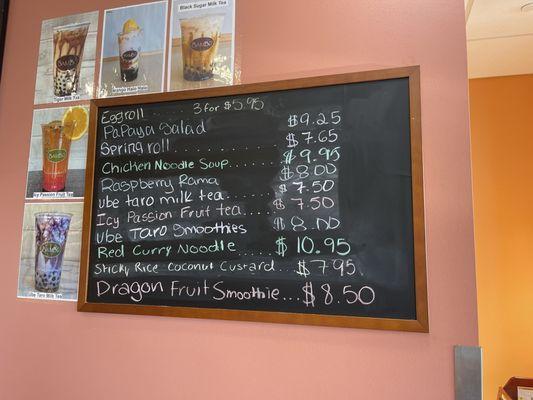 Black Sugar Milk Tea
BAMBÚ
BAMBÚ
BAMBÚ
Tiger Milk Tea
Mango Halo Halo
BAMBÚ
Icy Passion Fruit Tea
BAMBÚ
Ube Taro Milk Tea
Eggroll ........ 3 for $5.95
Papaya Salad $9.25
Spring roll ........ $7.65
Chicken Noodle Soup ....... $9.95
Raspberry Rama $8.00
ube taro milk tea ..... $7.50
Icy Passion Fruit tea .... $7.50
Ube Taro Smoothies $8.00
Red Curry Noodle ..... $10.95
Sticky Rice Coconut Custard .... $7.95
Dragon Fruit Smoothie ... $8.50